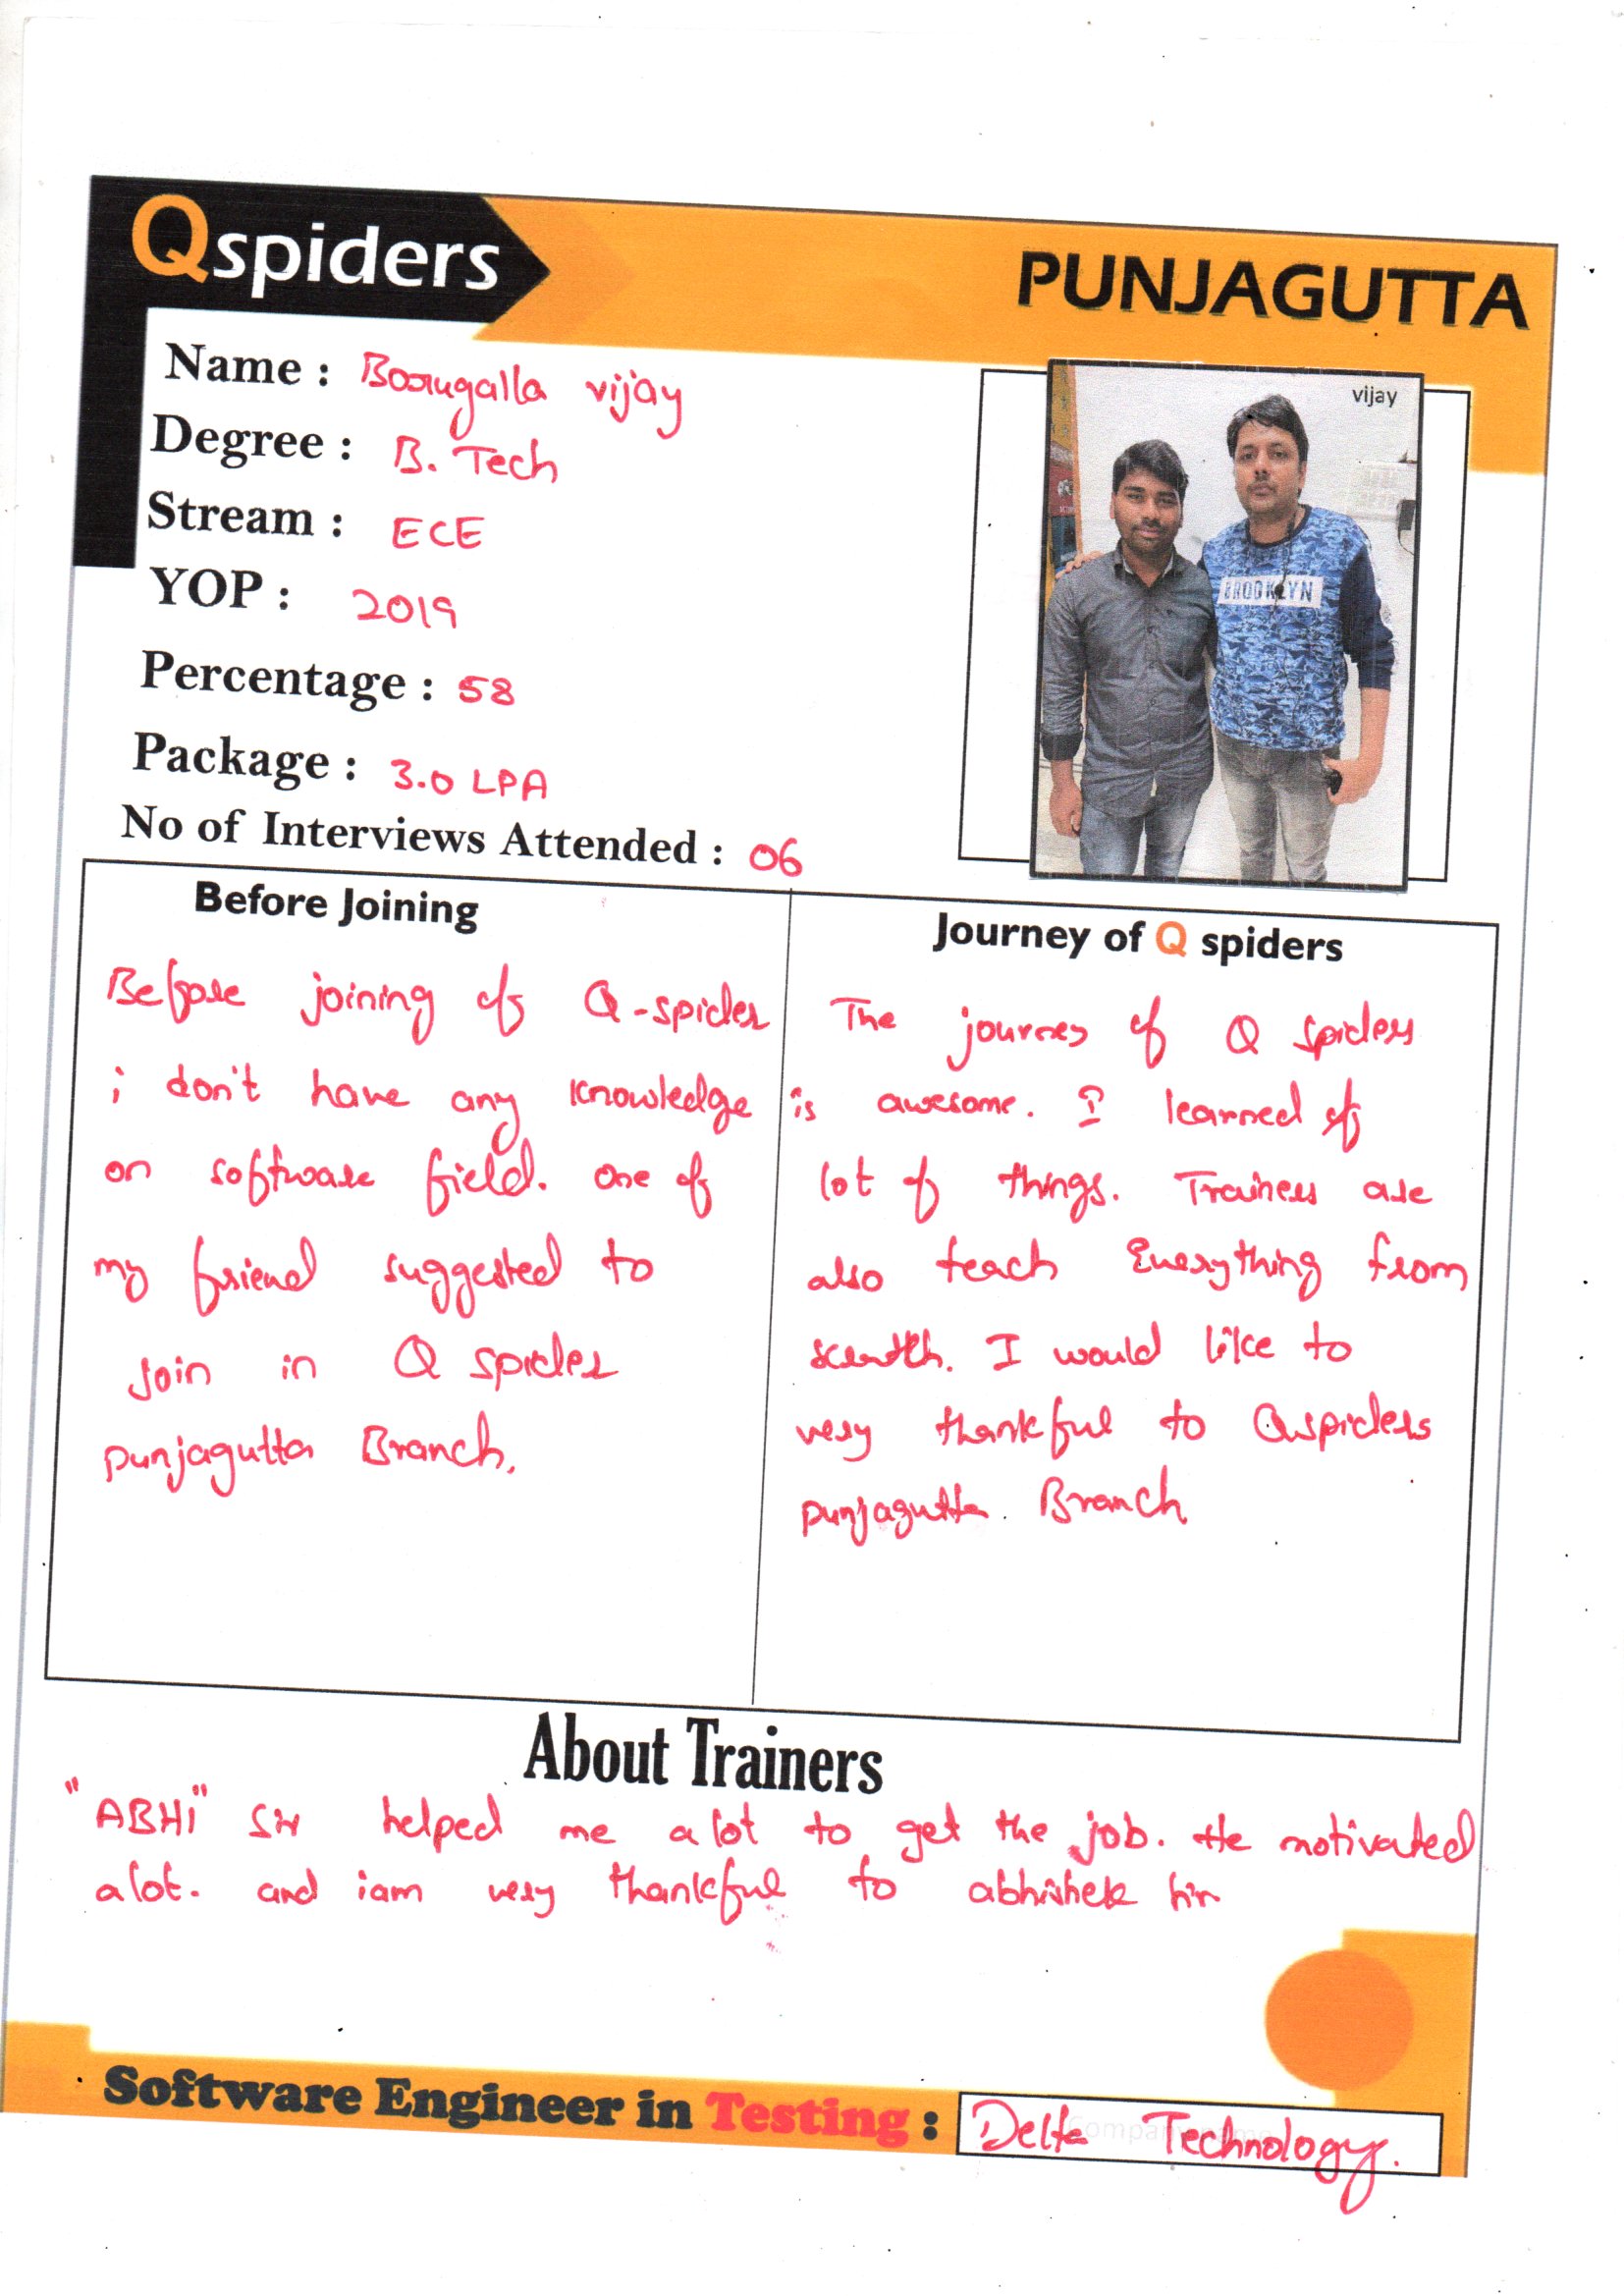 Qspiders
PUNJAGUTTA
Name : Boorugalla vijay
vijay
Degree : B. Tech
Stream : ECE
BROOKLYN
YOP : 2019
Percentage : 58
Package : 3.0 LPA
No of Interviews Attended : 06
Before Joining
Before joining of Q-spider
i don't have any knowledge
on software field. one of
my friend suggested to
join in Q spider
punjagutta Branch.
Journey of Q spiders
The journey of Q spiders
is awesome. I learned of
lot of things. Trainers are
also teach Everything from
I would like to
very thankful to Qspiders
punjagutta Branch
About Trainers
"ABHI" Sir helped me a lot to get the job. He motivated
alot. and iam very thankful to abhishek
Software Engineer in Testing : Delta Technology.